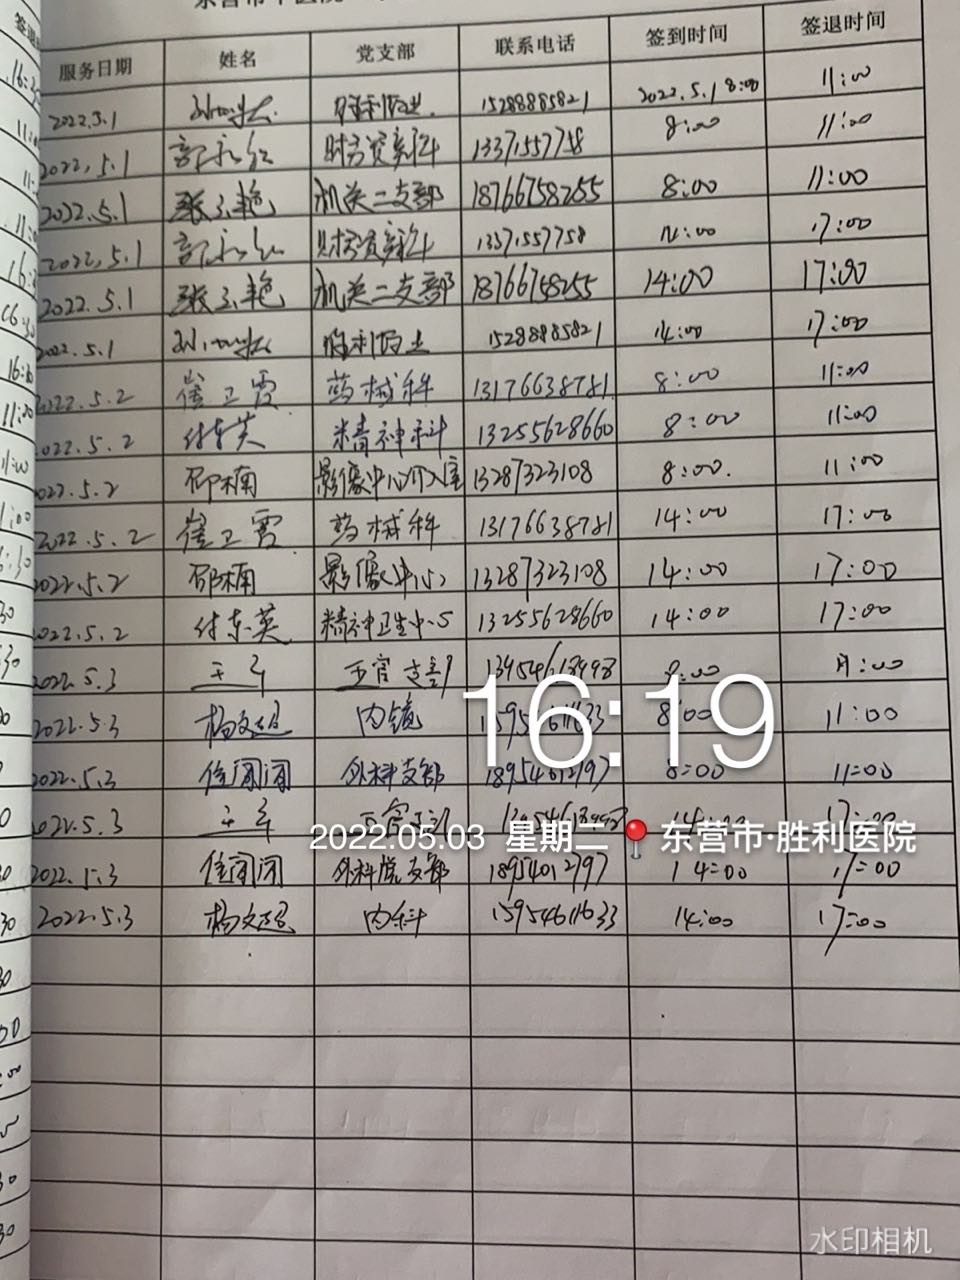 服务日期 姓名 党支部 联系电话 签到时间 签退时间
2022.5.1 15288885821 2022.5.1 8:00 11:00
2022.5.1 13371557758 8:00 11:00
2022.5.1 张玉艳 机关二支部 18766758255 8:00 11:00
2022.5.1 13371557758 14:00 17:00
2022.5.1 张玉艳 机关二支部 18766758255 14:00 17:00
2022.5.1 15288885821 14:00 17:00
2022.5.2 崔卫霞 药械科 13176638781 8:00 11:00
2022.5.2 付东英 精神科 13255628660 8:00 11:00
2022.5.2 邵楠 影像中心介入室 13287323108 8:00. 11:00
2022.5.2 崔卫霞 药械科 13176638781 14:00 17:00
2022.5.2 邵楠 影像中心 13287323108 14:00 17:00
2022.5.2 付东英 精神卫生中心 13255628660 14:00 17:00
2022.5.3 五官 8:00
2022.5.3 杨文超 内镜 15954611633 8:00 11:00
2022.5.3 外科支部 8=00 11=00
2022.5.3 14:00 17:00
2022.5.3 外科党支部 14=00 17=00
2022.5.3 杨文超 内科 15954611633 14:00 17:00
16:19
2022.05.03 星期二 东营市·胜利医院
水印相机